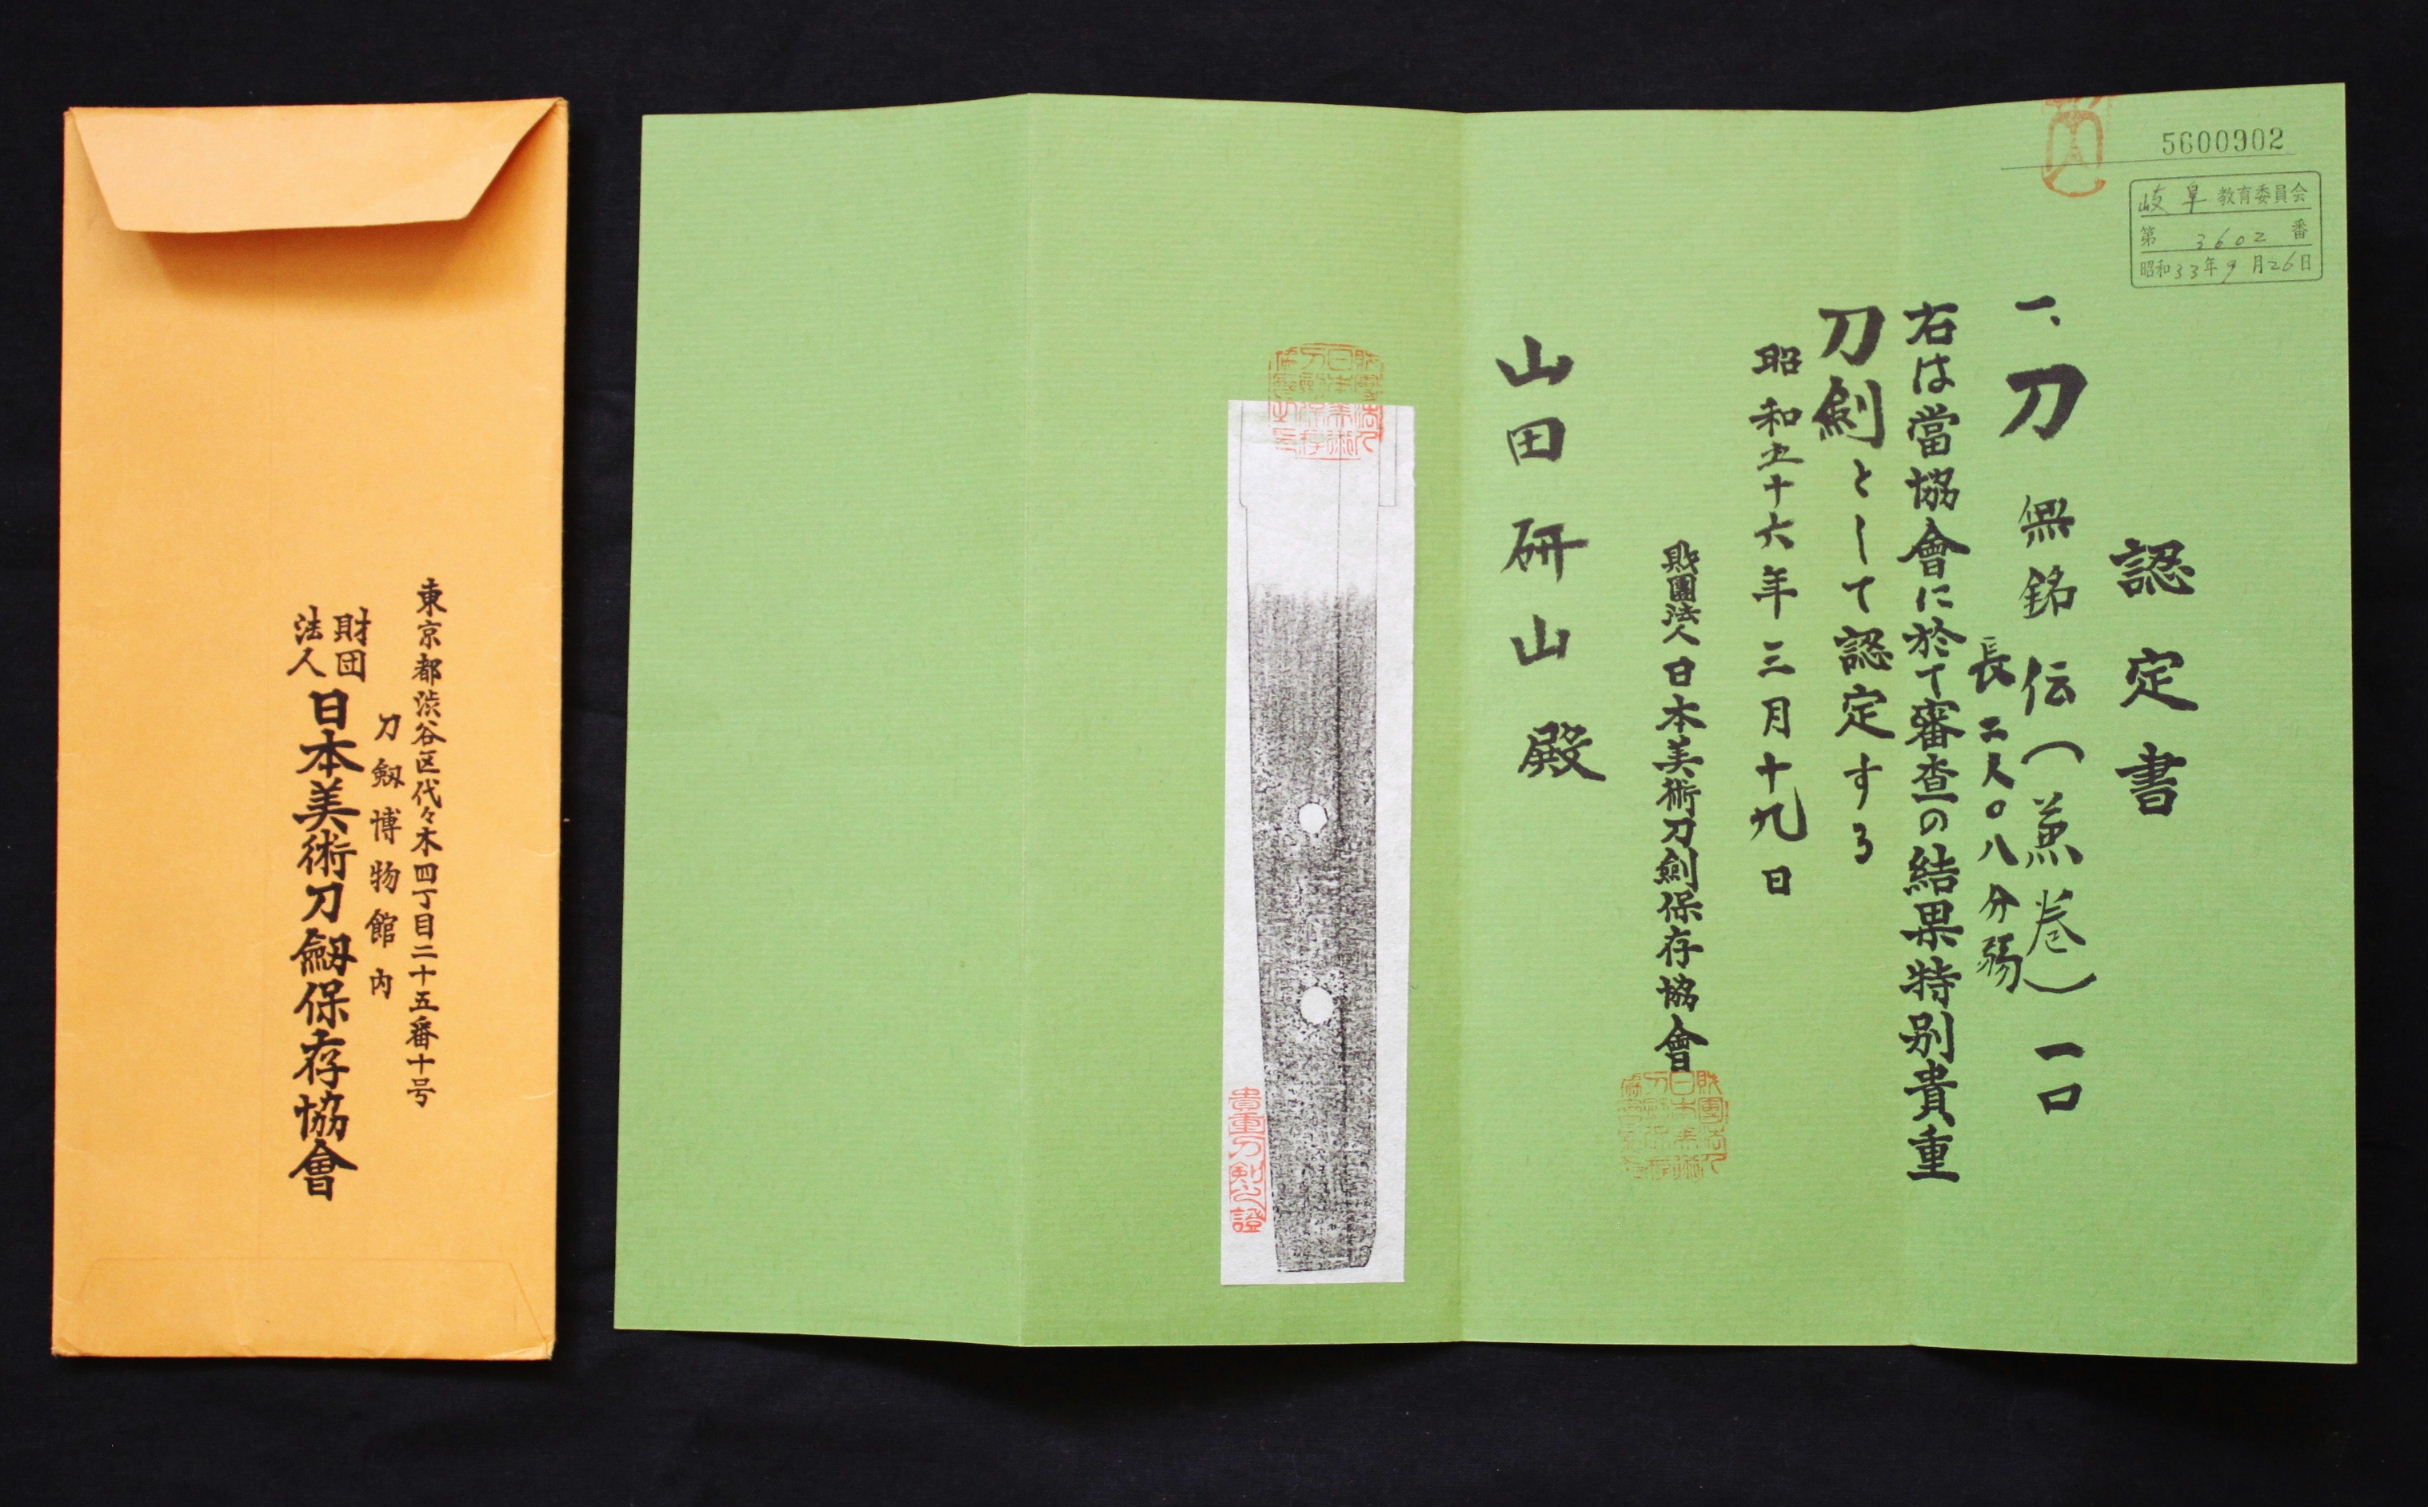 東京都渋谷区代々木四丁目二十五番十号
刀劔博物館内
財団法人日本美術刀劔保存協會
5600902
岐阜教育委員会
第3602番
昭和33年9月26日
認定書
一、刀 無銘 伝(兼巻)一口
長二尺〇八分弱
右は當協會に於て審査の結果特別貴重
刀劍として認定する
昭和五十六年三月十九日
財團法人日本美術刀劍保存協會
山田研山殿
貴重刀剣之證